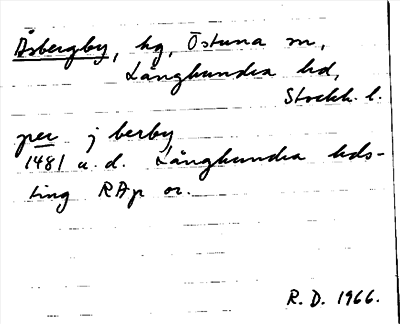 Åsbergby, hg, Östuna sn,
Långhundra hd,
Stockh. l.
per j berby
1481 u. d. Långhundra hds-
ting RAp or.
R. D. 1966.